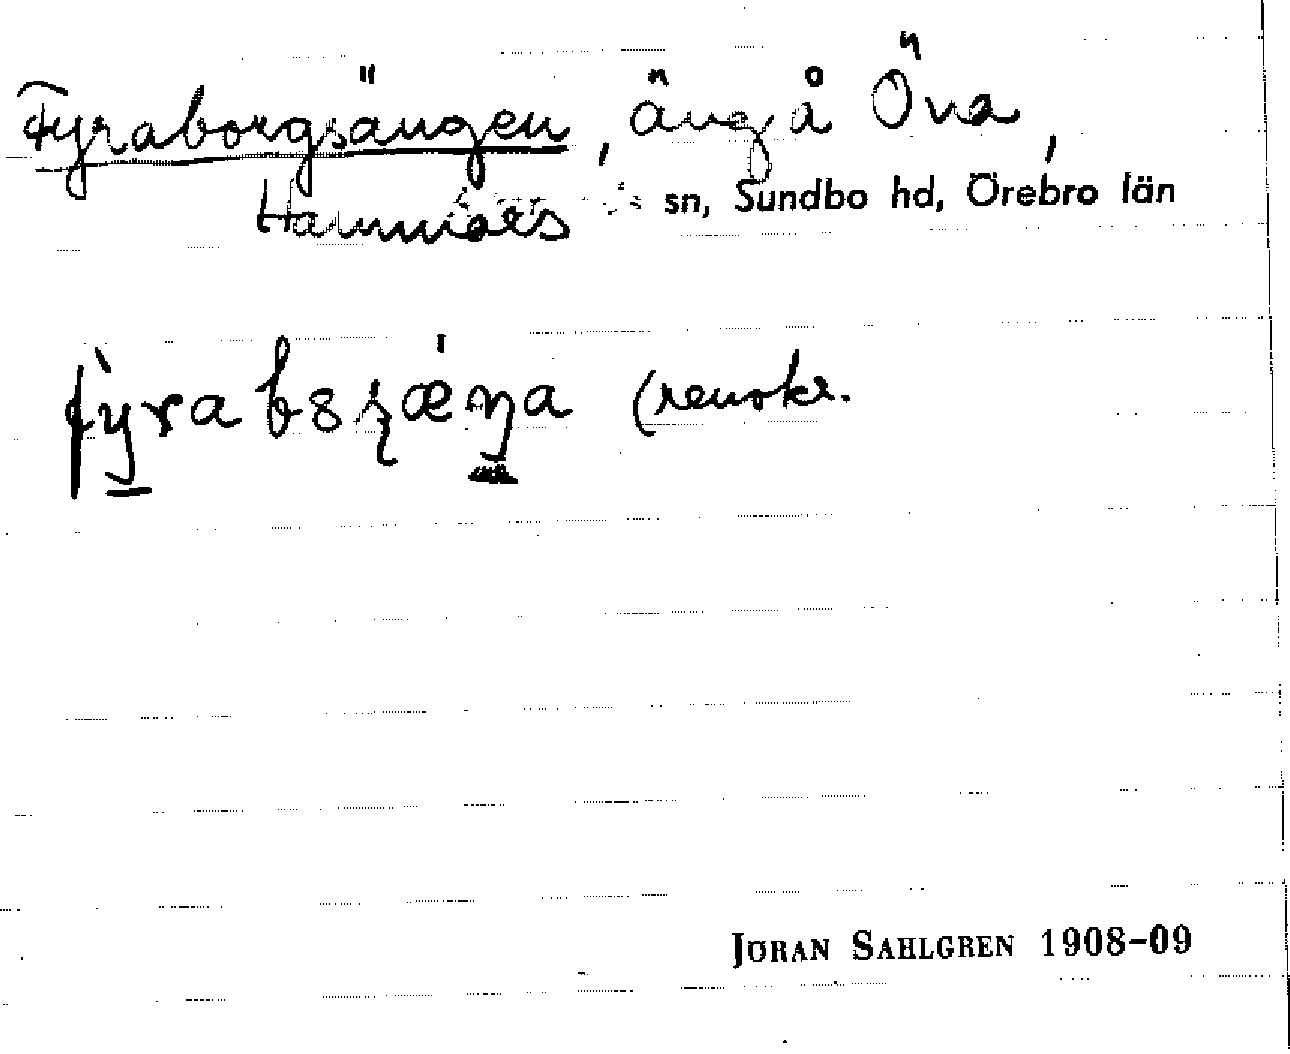 Fyraborgsängen, äng å Öna,
Hammars sn, Sundbo hd, Örebro län
(renskr.
JÖRAN SAHLGREN 1908-09